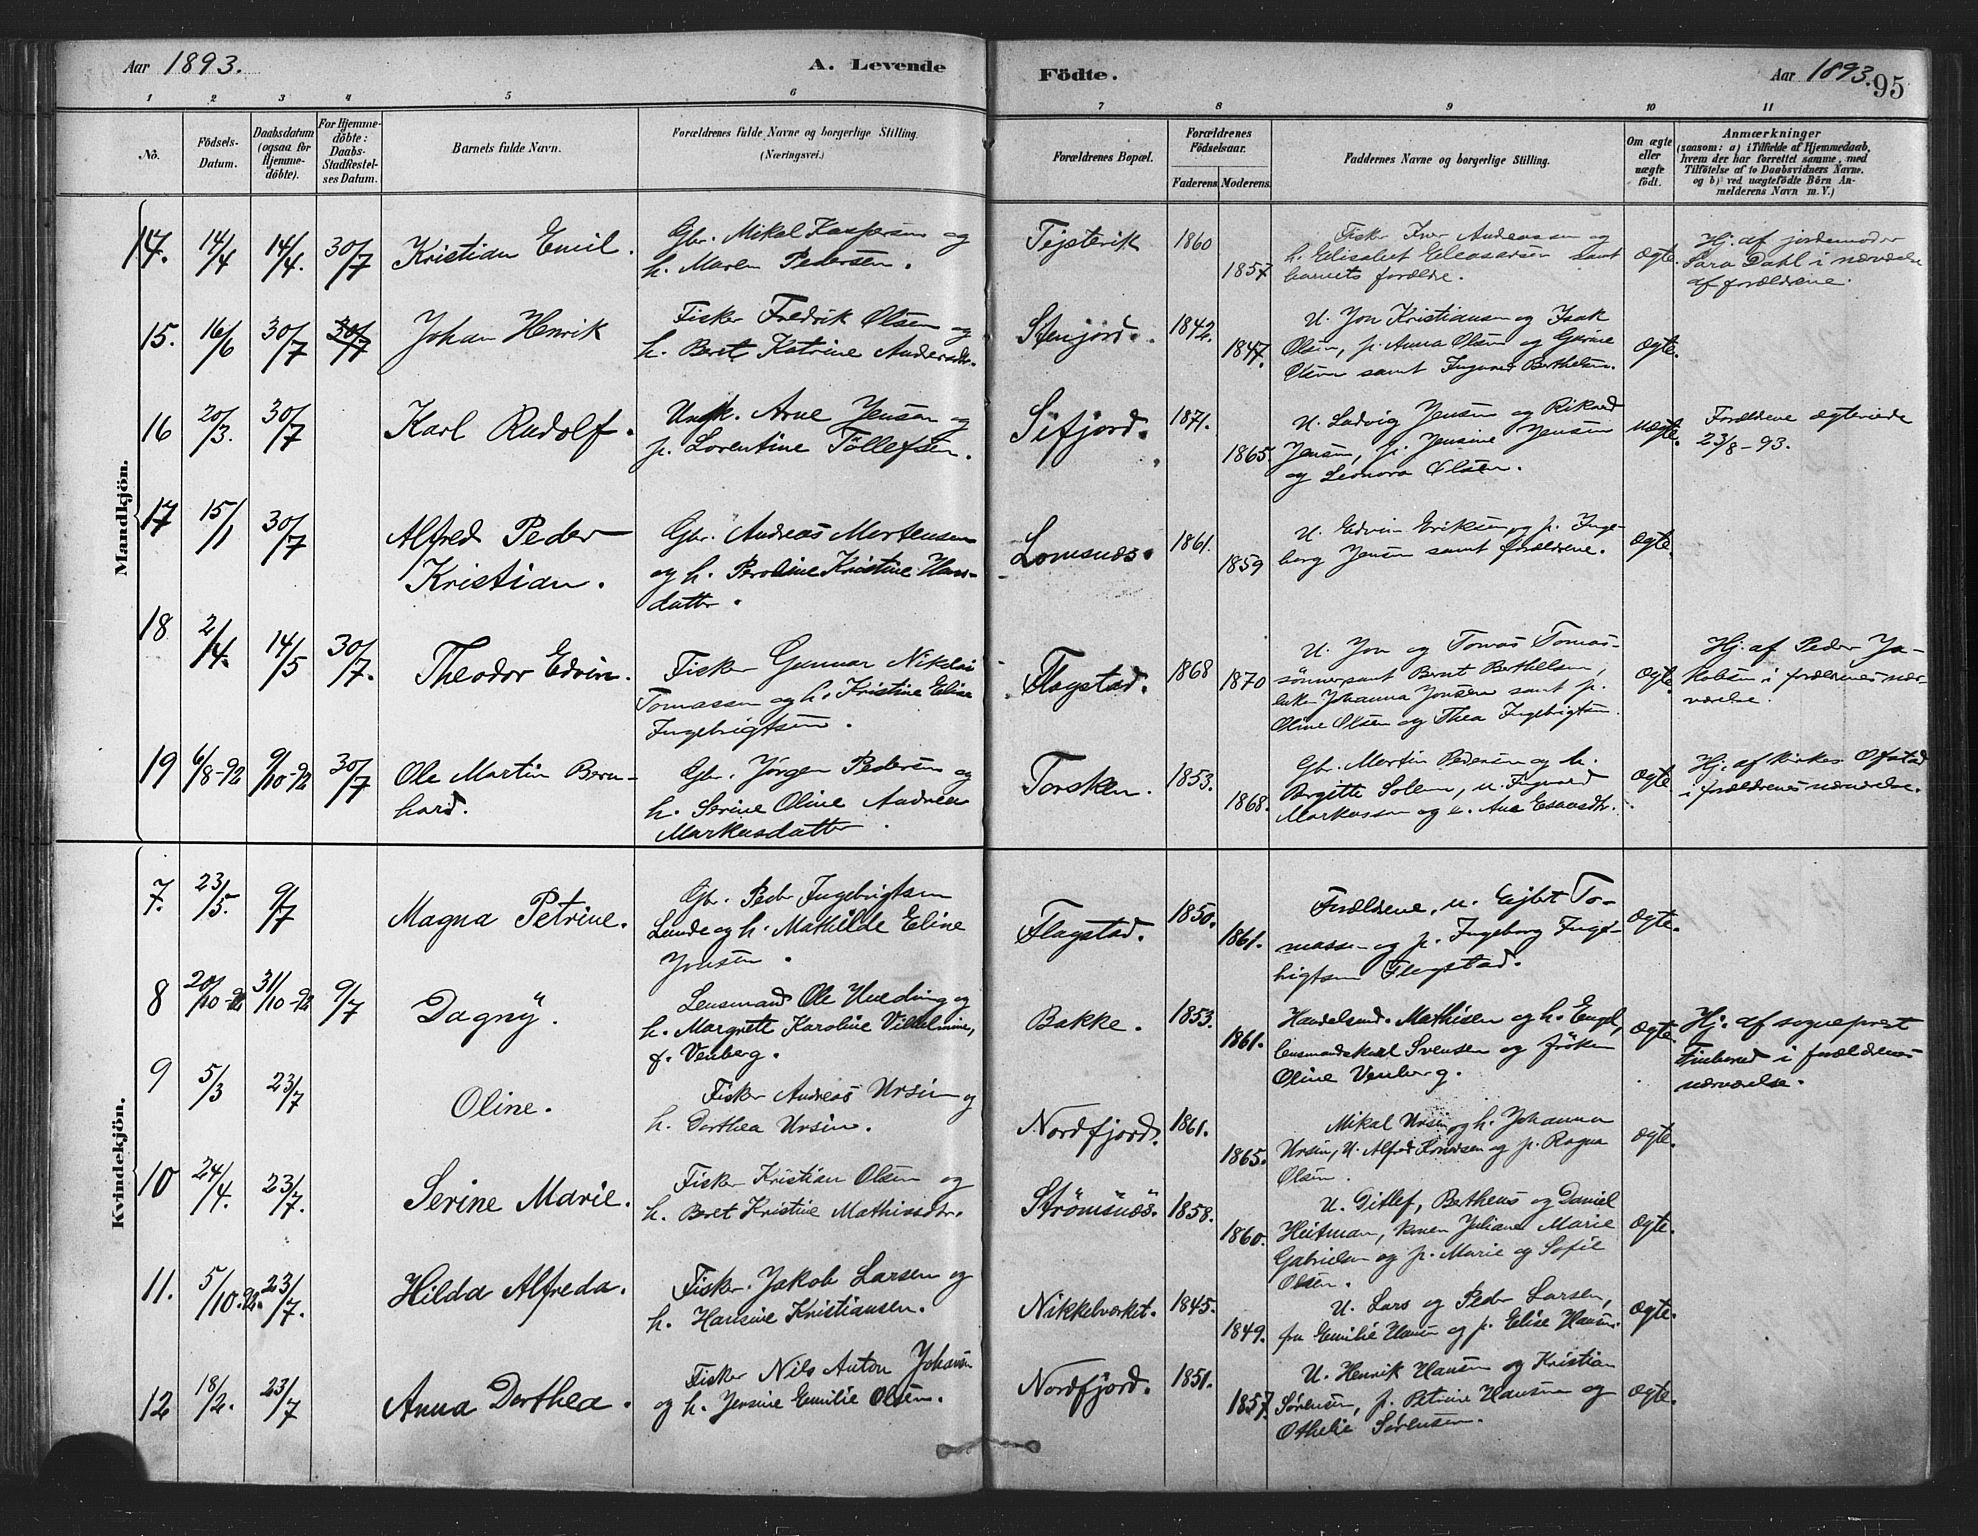 Aar 1893. A. Levende Födte. Aar 1893. 95
1 2 3 4 5 6 7 8 9 10 11
No. Födsels-Datum. Daabsdatum (ogsaa for Hjemmedöbte). For Hjemmedöbte: Daabs-Stadfestelses Datum. Barnets fulde Navn. Forældrenes fulde Navne og borgerlige Stilling. (Næringsvei.) Forældrenes Bopæl. Forældrenes Födselsaar. Faderens Moderens. Faddernes Navne og borgerlige Stilling. Om ægte eller uægte födt. Anmærkninger (saasom: a) i Tilfælde af Hjemmedaab, hvem der har forrettet samme, med Tilföielse af to Daabsvidners Navne. og b) ved uægtefödte Börn Anmelderens Navn m. V.)
Mandkjön.
14. 14/4 14/4. 30/7 Kristian Emil. Gbr. Mikal Kaspersen og
h. Maren Pedersen. Tejstevik 1860 1857 Fisker Iver Andreassen og
h. Elisabet Eleasarsen samt
barnets forældre. Ægte. Hj. af jordemoder
Sara Dahl i nærværelse
af forældrene.
15. 16/6 30/7 30/7 Johan Henrik Fisker Fredrik Olsen og
h. Beret Katrine Andersdtr. Stenjord. 1842. 1847. U. Jon Kristiansen og Isak
Olsen, p. Anna Olsen og
Olsen samt Ingvard Berthelsen. Ægte.
16 20/3. 30/7 Karl Rudolf. Ungk. Arne Jensen og
p. Lorentine Tøllefsen. Sifjord. 1871. 1865. U. Ludvig Jensen og Rikard
Jensen, p. Jensine Jensen
og Leonora Olsen. Uægte. Forældrene ægteviede
23/8-93.
17 15/1 30/7 Alfred Peder
Kristian. Gbr. Andreas Mortensen
og h. Peroline Kristine Hans-
datter. Lomsnæs. 1861. 1859 U. Edvin Eriksen og p. Inge-
borg Jensen samt forældrene. Ægte.
18 2/4. 14/5 30/7. Theodor Edvin. Fisker Gunnar Nikolai
Tomassen og h. Kristine Elise
Ingebrigtsen. Flagstad. 1868 1870 U. Jon og Tomas Tomas-
sønner samt Bernt Berthelsen,
enke Johanna Jonsen samt p.
Oline Olsen og Thea Ingebrigtsen. Ægte. Hj. af Peder Ja-
kobsen i forældrenes nær-
værelse.
19 6/8-92 9/10-92 30/7 Ole Martin Bern-
hard. Gbr. Jørgen Pedersen og
h. Serine Oline Andrea
Markusdatter. Torsken. 1853. 1868. Gbr. Martin Pedersen og h.
Birgitte Solem, u. Ingvard
Markussen og e. Ane Esaasdtr. Ægte. Hj. af kirkes. Ofstad
i forældrenes nærværelse.
Kvindekjön.
7. 23/5. 9/7 Magna Petrine. Gbr. Peder Ingebrigtsen
Lunde og h. Mathilde Eline
Jonsen. Flagstad. 1850. 1861. Forældrene, u. Ejlert To-
massen og p. Ingeborg Inge-
brigtsen Flagstad. Ægte.
8 20/10-92 31/10-92 9/7 Dagny. Lensmand Ole Hveding og
h. Margrete Karoline Vilhelmine,
f. Venberg. Bakke. 1853. 1861. Handelsmd. Mathisen og h. Engel,
lensmandskarl Svensen og frøken
Oline Venberg. Ægte. Hj. af sogneprest
i forældrenes
nærværelse.
9 5/3 23/7 Oline. Fisker Andreas Ursin og
h. Dorthea Ursin. Nordfjord. 1861. 1865. Mikal Ursin og h. Johanna
Ursin, U. Alfred Knudsen og p. Ragna
Olsen. Ægte.
10 24/4. 23/7. Serine Marie. Fisker Kristian Olsen og
h. Beret Kristine Mathisdtr. Strömsnæs. 1858. 1860. U. Ditlef, Betheus og Daniel
Heitman, Juliane Marie
Gabrielsen og p. Marie og Sofie
Olsen. Ægte.
11. 5/10.92. 23/7. Hilda Alfreda. Fisker Jakob Larsen og
h. Hansine Kristiansen. Nikkelverket. 1845. 1849. U. Lars og Peder Larsen,
fru Emilie Hansen og p. Elise Hansen. Ægte.
12 18/2. 23/7 Anna Dorthea. Fisker Nils Anton Johansen
og h. Jensine Emilie Olsen. Nordfjord. 1851. 1857. U. Henrik Hansen og Kristian
Sörensen, p. Petrine Hansen og
Othelie Sörensen. Ægte.